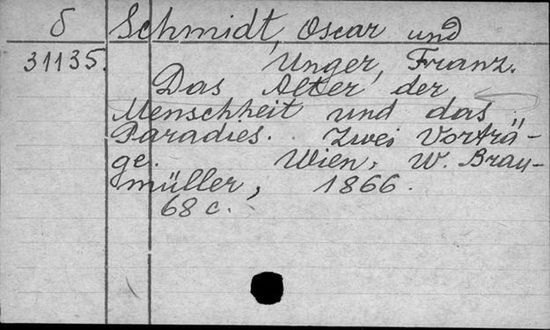 δ Schmidt, Oscar und
31135. Unger, Franz.
Das Alter der
Menschheit und das
Paradies. Zwei Vorträ-
ge. Wien, W. Brau-
müller, 1866.
68 c.